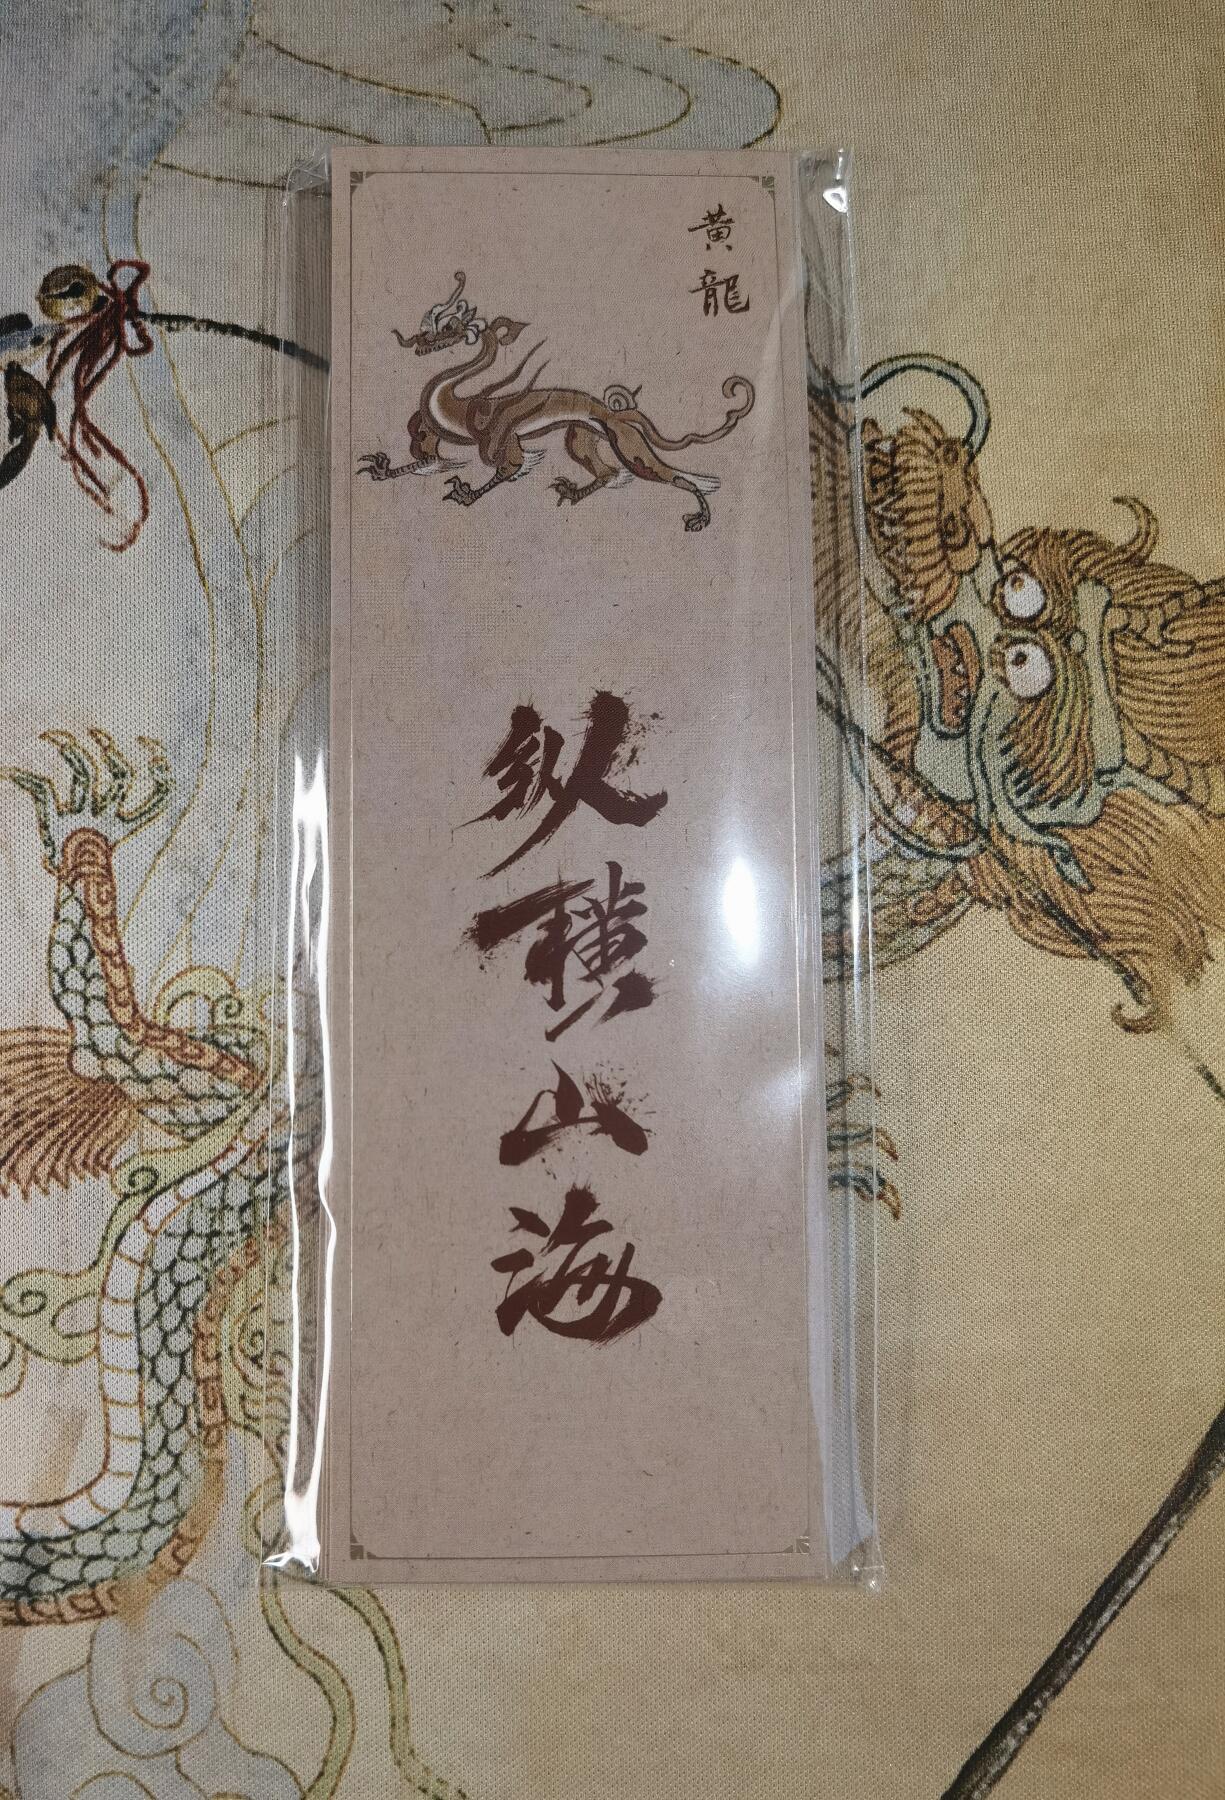 黄龍
纵横山海